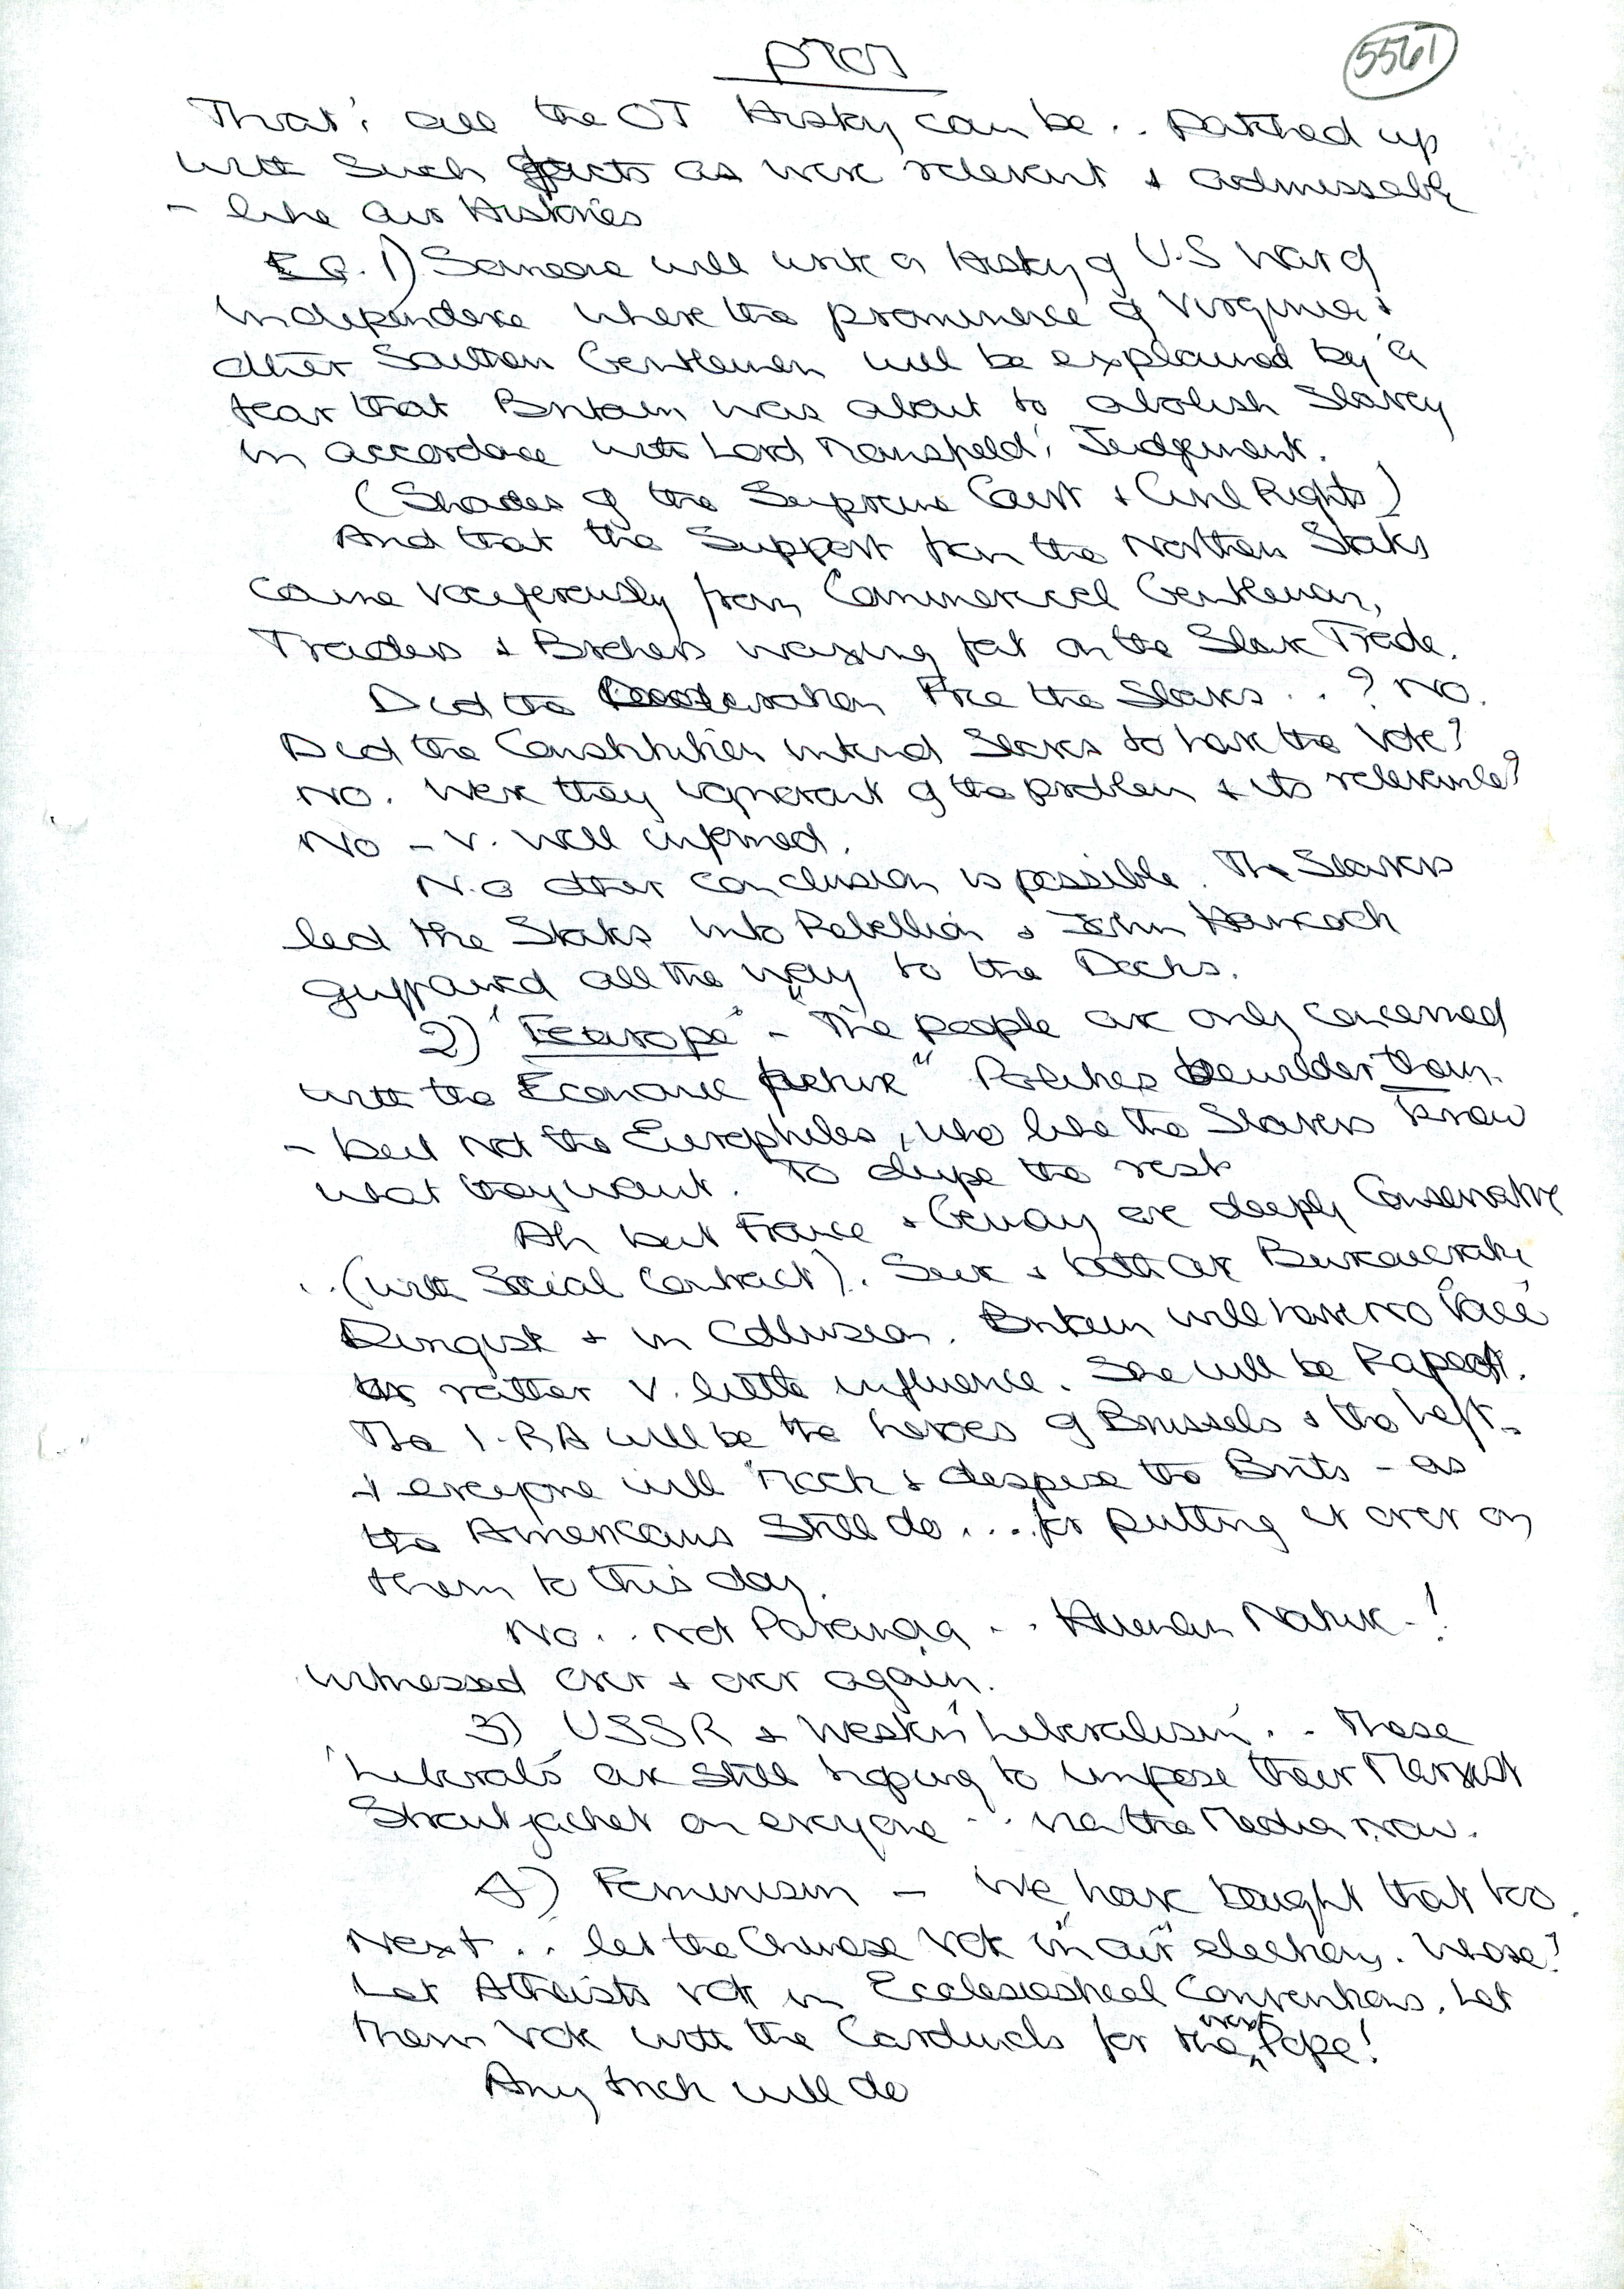 5561
That's all the OT History can be .. Patched up
with such facts as were relevant & admissable
- like our Histories
EG. 1) Someone will write a History of U.S War of
Independence where the prominence of Virginia &
other Southern Gentlemen will be explained by a
fear that Britain was about to abolish Slavery
in accordance with Lord Mansfield's Judgement.
(Shades of the Supreme Court & Civil Rights)
And that the Support from the Northern States
came vociferously from Commercial Gentlemen,
Traders & Brokers waxing fat on the Slave Trade.
Did the Free the Slaves .. ? No.
Did the Constitution intend Slaves to have the Vote?
No. Were they ignorant of the problem & its relevance?
No - v. well informed.
No other conclusion is possible. The Slavers
led the States into Rebellion & John Hancock
guffawed all the way to the Docks.
2) "Europe" - "The people are only concerned
with the Economic picture" Politics bewilder them.
- but not the Europhiles, who like the Slavers know
what they want. To dupe the rest
Ah but France & Germany are deeply Conservative
.. (with Social Contract). Sure & both are Bureaucratic
Dirigist & in Collusion. Britain will have no
or rather v. little influence. She will be Raped.
The I.R.A will be the heroes of Brussels & the Left.
& everyone will mock & despise the Brits - as
the Americans still do ... for putting it over on
them to this day.
No .. not Paranoia .. Human Nature - !
witnessed over & over again.
3) USSR & Western 'Liberalism' .. These
'Liberals' are still hoping to impose their Marxist
Straitjacket on everyone .. via the Media now.
4) Feminism - We have bought that too.
Next .. let the Chinese vote in "our" elections. Whose?
Let Atheists vote in Ecclesiastical Conventions. Let
them vote with the Cardinals for the next Pope!
Any trick will do